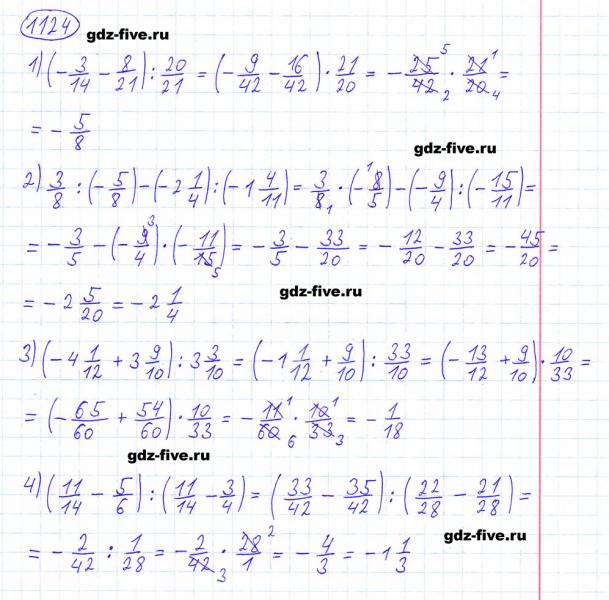 1124
gdz-five.ru
1) (-3/14 - 8/21) : 20/21 = (-9/42 - 16/42) · 21/20 = -25/42 · 21/20 = 5 2 1 4
= -5/8
gdz-five.ru
2) 3/8 : (-5/8) - (-2 1/4) : (-1 4/11) = 3/8 · (-8/5) - (-9/4) : (-15/11) = 1 1
= -3/5 - (-9/4) · (-11/15) = -3/5 - 33/20 = -12/20 - 33/20 = -45/20 = 3 5
= -2 5/20 = -2 1/4
gdz-five.ru
3) (-4 1/12 + 3 9/10) : 3 3/10 = (-1 1/12 + 9/10) : 33/10 = (-13/12 + 9/10) · 10/33 =
= (-65/60 + 54/60) · 10/33 = -11/60 · 10/33 = -1/18 1 6 1 3
gdz-five.ru
4) (11/14 - 5/6) : (11/14 - 3/4) = (33/42 - 35/42) : (22/28 - 21/28) =
= -2/42 : 1/28 = -2/42 · 28/1 = -4/3 = -1 1/3 3 2
gdz-five.ru